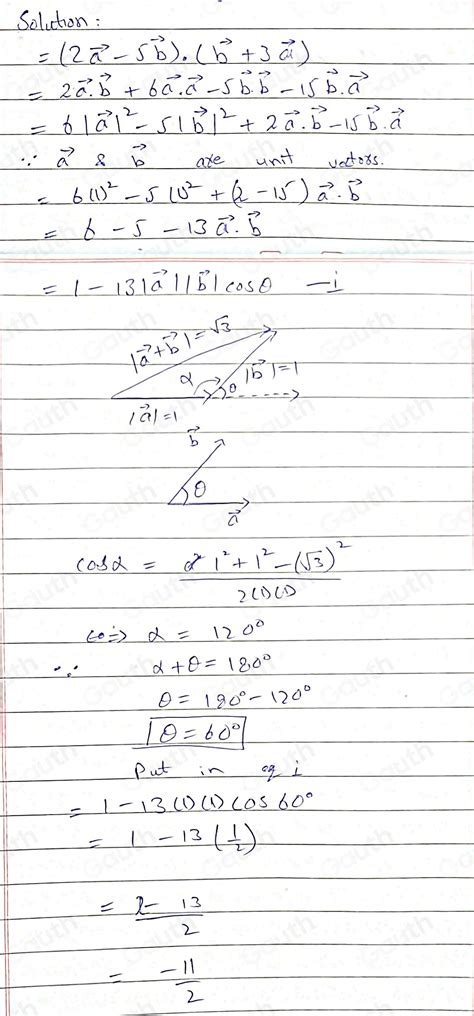 Solution:
= (2a⃗ − 5b⃗).(b⃗ + 3a⃗)
= 2a⃗.b⃗ + 6a⃗.a⃗ − 5b⃗.b⃗ − 15b⃗.a⃗
= 6|a⃗|² − 5|b⃗|² + 2a⃗.b⃗ − 15b⃗.a⃗
∵ a⃗ & b⃗ are unit vectors.
= 6(1)² − 5(1)² + (2 − 15) a⃗.b⃗
= 6 − 5 − 13 a⃗.b⃗
= 1 − 13|a⃗||b⃗| cosθ — i
|a⃗ + b⃗| = √3
α θ |b⃗| = 1
|a⃗| = 1
b⃗
θ
a⃗
cosα = 1² + 1² − (√3)² / 2(1)(1)
⇒ α = 120°
∵ α + θ = 180°
θ = 180° − 120°
θ = 60°
Put in eq i
= 1 − 13(1)(1) cos60°
= 1 − 13 (1/2)
= 2 − 13 / 2
= −11 / 2
Gauth